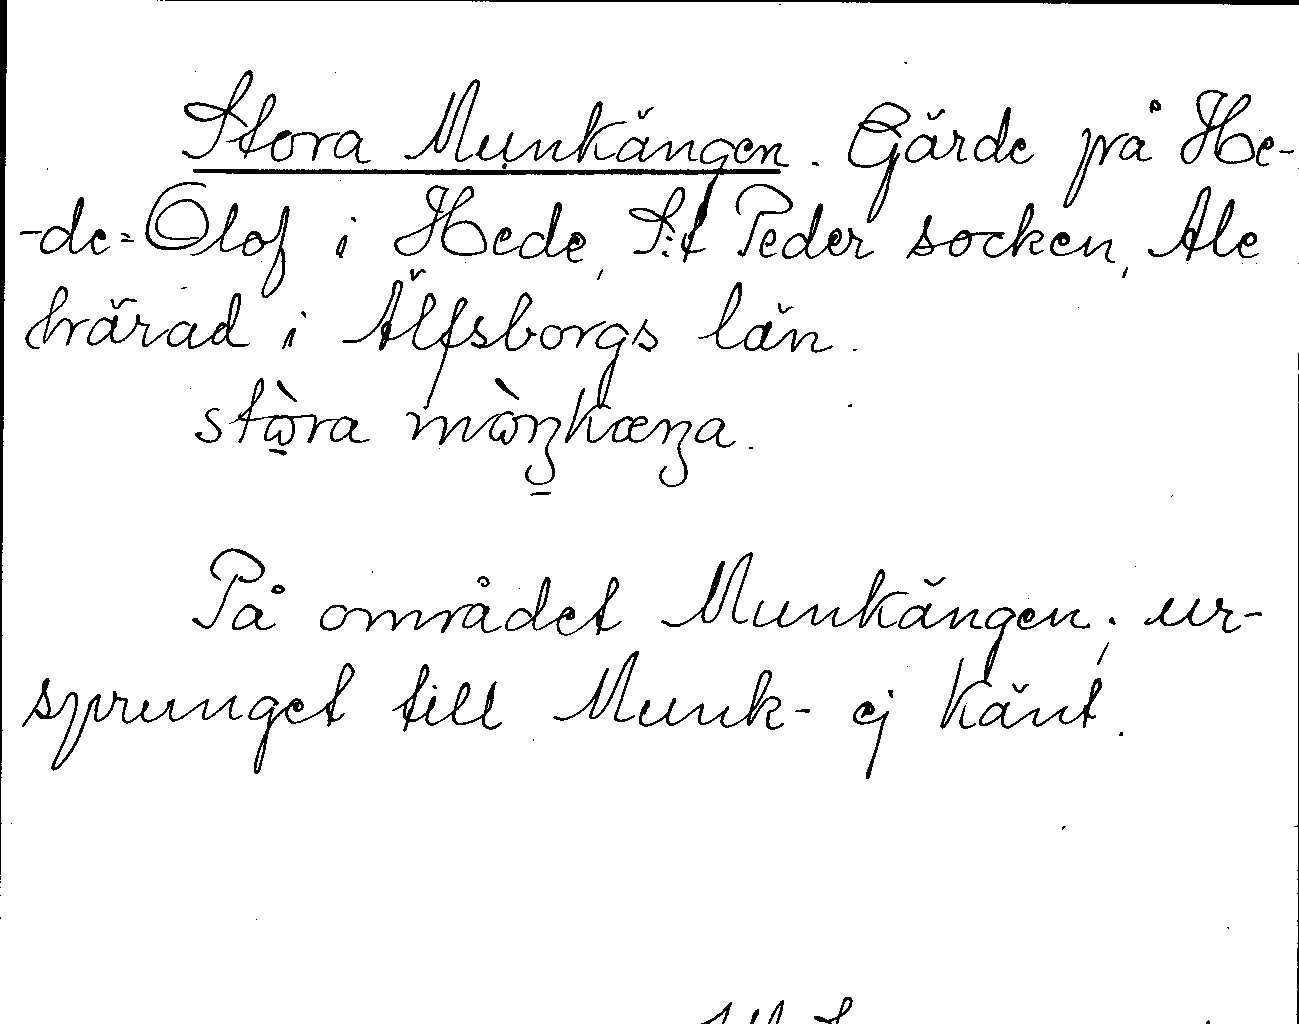 Stora Munkängen. Gärde på He-
-de-Olof i Hede, S:t Peder socken, Ale
härad i Älfsborgs län.
På området Munkängen; ur-
sprunget till Munk- ej känt.